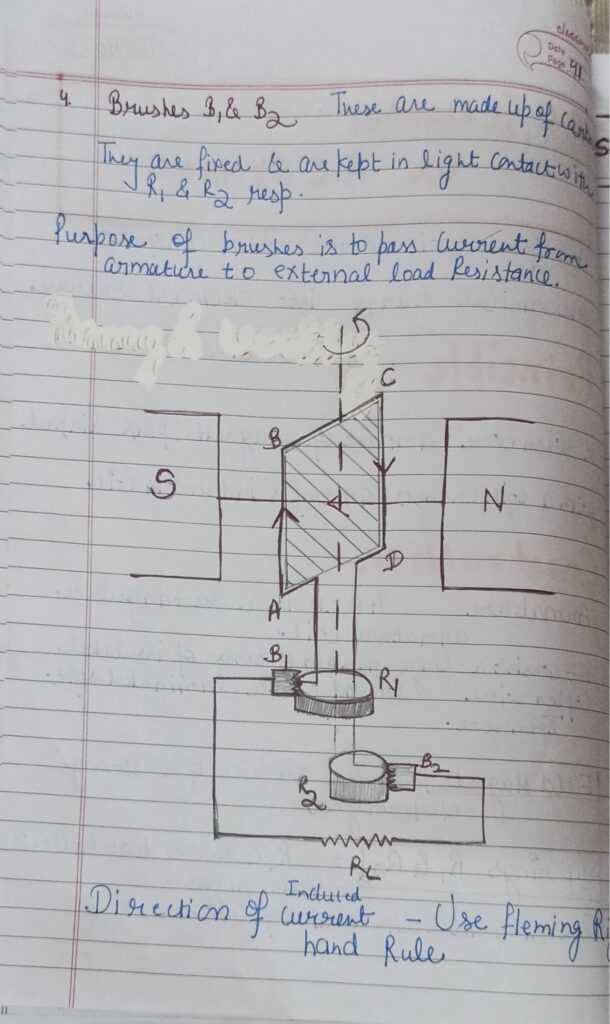 classmate
Date
Page 41
4. Brushes B1 & B2 These are made up of
They are fixed & are kept in light contact with
R1 & R2 resp.
Purpose of brushes is to pass current from
armature to external load Resistance.
C
B
S
N
D
A
B1
R1
B2
R2
RL
Induced
Direction of current - Use fleming
hand Rule